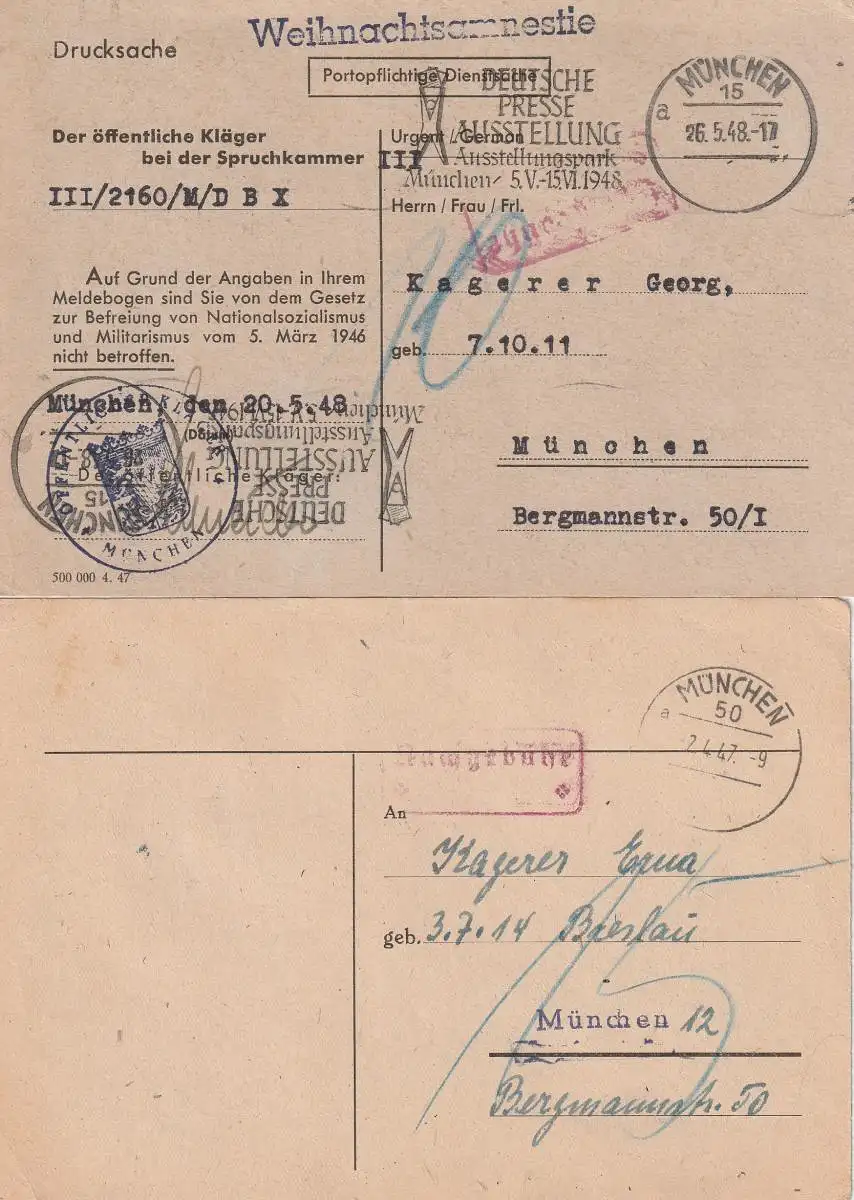 Weihnachtsamnestie
Drucksache
Portopflichtige Dienstsache
DEUTSCHE
PRESSE
AUSSTELLUNG
Ausstellungspark
München 5.V.-15.VI.1948
MÜNCHEN
15
a
26.5.48.-17
Der öffentliche Kläger
bei der Spruchkammer III
III/2160/M/D B X
Urgent / German
Herrn / Frau / Frl.
Auf Grund der Angaben in Ihrem
Meldebogen sind Sie von dem Gesetz
zur Befreiung von Nationalsozialismus
und Militarismus vom 5. März 1946
nicht betroffen.
Kagerer Georg,
geb. 7.10.11
München
Bergmannstr. 50/I
München, den 20.5.48
(Datum)
Der öffentliche Kläger:
MÜNCHEN
15
DEUTSCHE
PRESSE
AUSSTELLUNG
Ausstellungspark
München 5.V.-15.VI.1948
MÜNCHEN
500 000 4. 47
MÜNCHEN
50
a
2.4.47.-9
Nachgebühr
An
Kagerer Erna
geb. 3.7.14 Breslau
München 12
Bergmannstr. 50